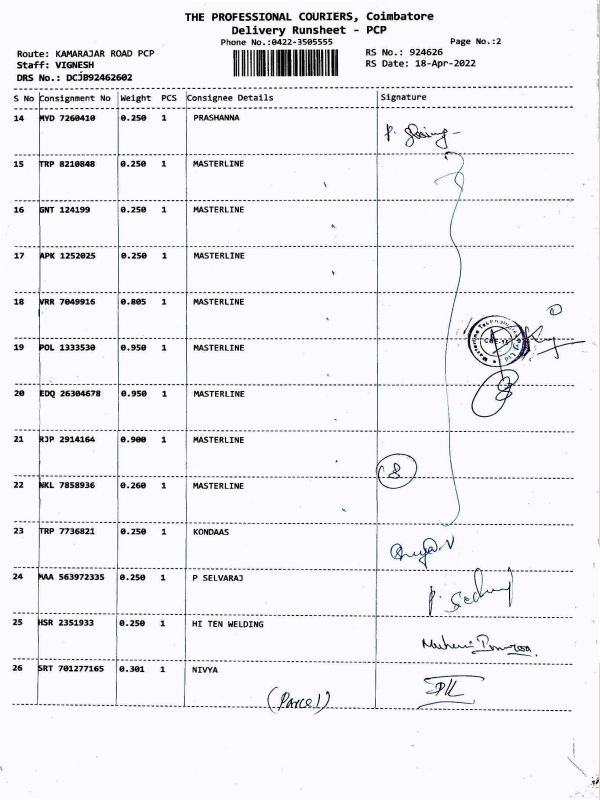 THE PROFESSIONAL COURIERS, Coimbatore
Delivery Runsheet - PCP
Phone No.:0422-3505555
Page No.:2
Route: KAMARAJAR ROAD PCP
RS No.: 924626
Staff: VIGNESH
RS Date: 18-Apr-2022
DRS No.: DCJB92462602
S No Consignment No Weight PCS Consignee Details Signature
14 MYD 7260410 0.250 1 PRASHANNA
15 TRP 8210848 0.250 1 MASTERLINE
16 GNT 124199 0.250 1 MASTERLINE
17 APK 1252025 0.250 1 MASTERLINE
18 VRR 7049916 0.805 1 MASTERLINE
19 POL 1333530 0.950 1 MASTERLINE
20 EDQ 26304678 0.950 1 MASTERLINE
21 RJP 2914164 0.900 1 MASTERLINE
8
22 NKL 7858936 0.260 1 MASTERLINE
23 TRP 7736821 0.250 1 KONDAAS
24 MAA 563972335 0.250 1 P SELVARAJ
25 HSR 2351933 0.250 1 HI TEN WELDING
26 SRT 701277165 0.301 1 NIVYA
(Parcel)